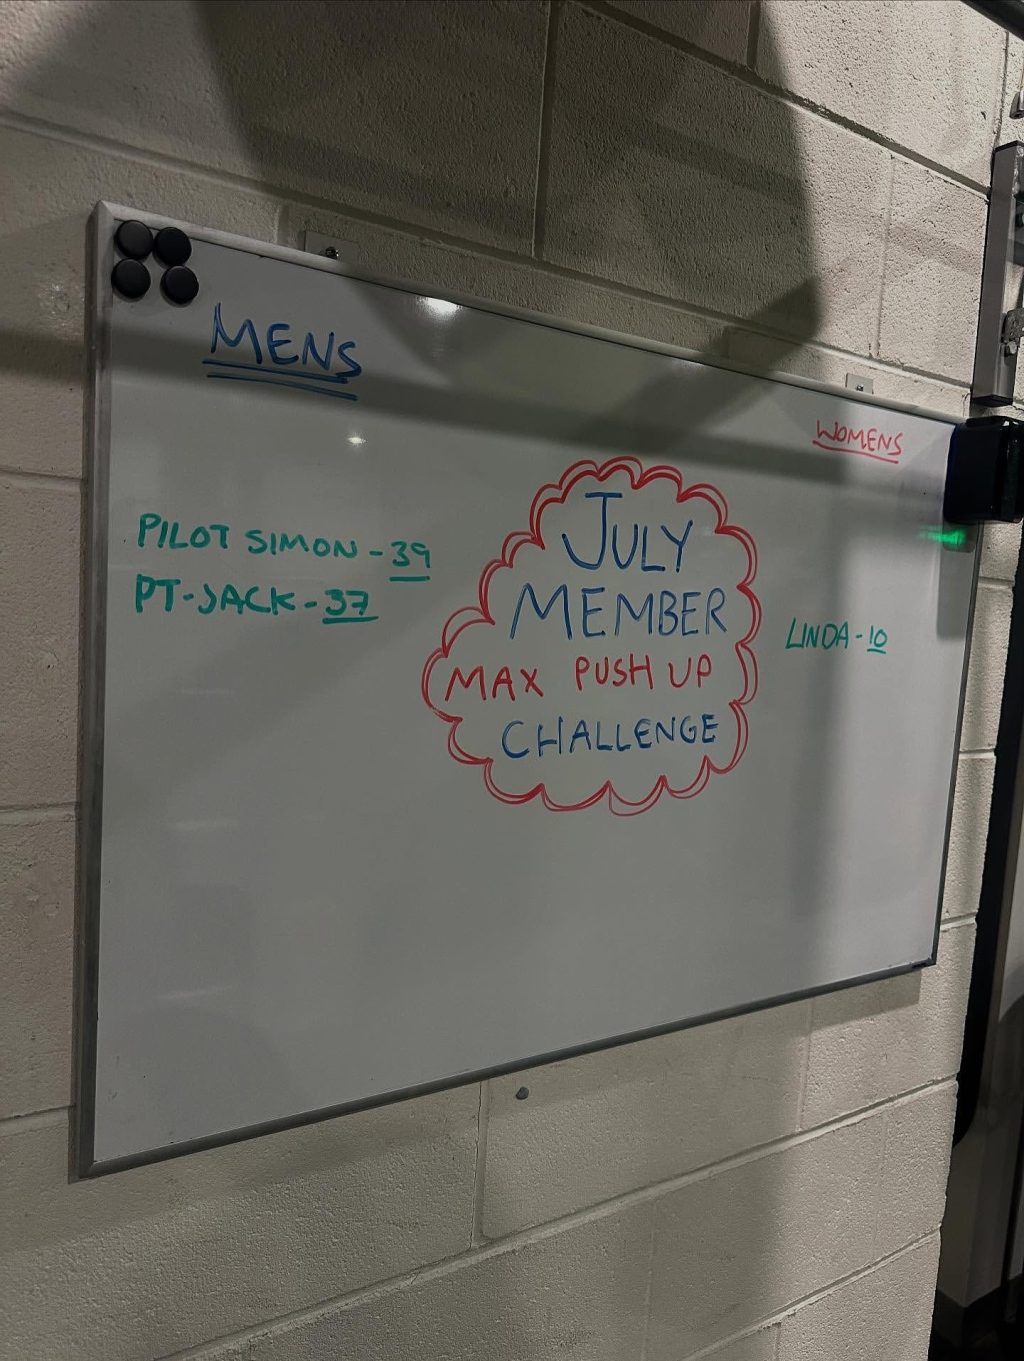 MENS
WOMENS
PILOT SIMON - 39
PT-JACK - 37
JULY
MEMBER
MAX PUSH UP
CHALLENGE
LINDA - 10